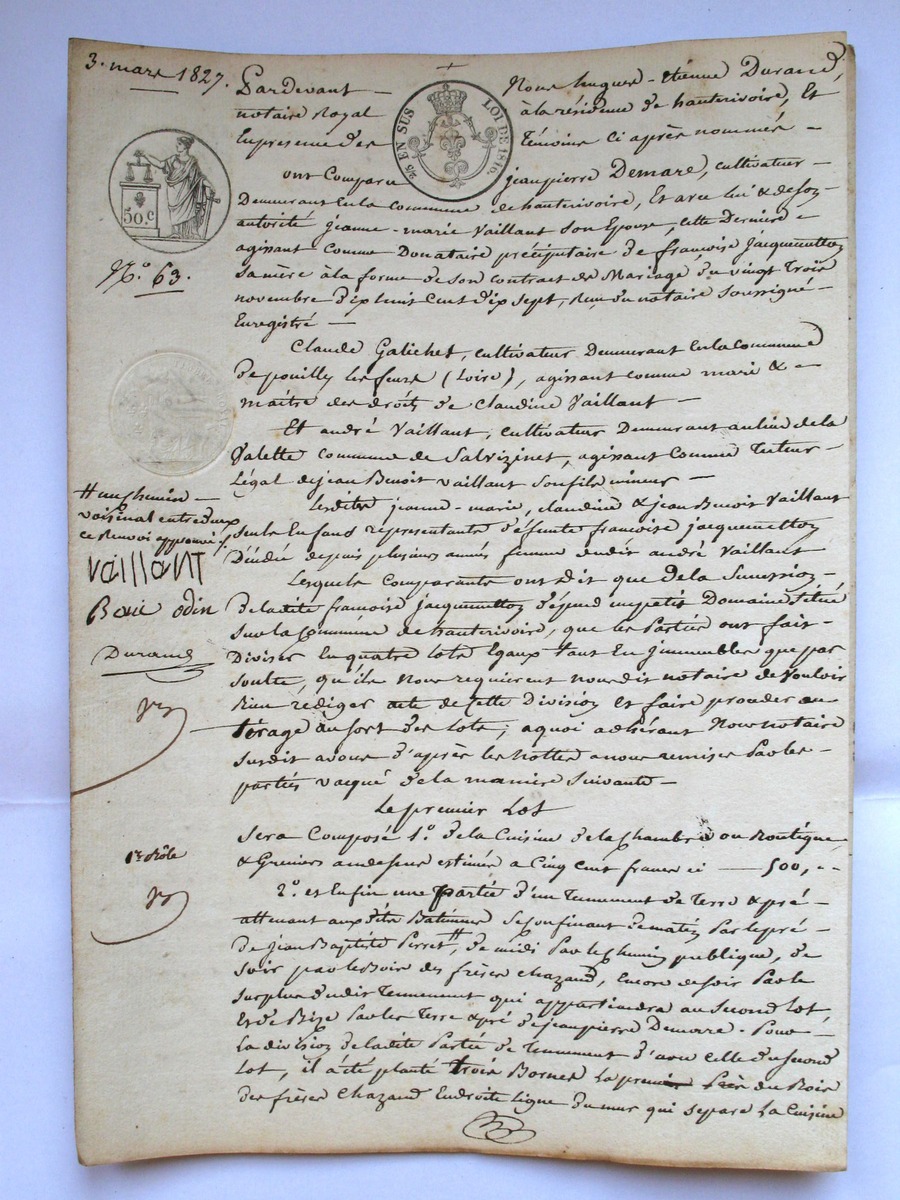 3. mars 1827.
Pardevant Nous hugues-Etienne Durand,
notaire Royal à la résidence de hauterivoire, Et
En presence des Témoins Ci après nommés —
2/5 EN SUS LOI DE 1816.
50.c
N.° 63.
ont Comparu jeanpierre Demare, cultivateur —
Demeurant En la commune de hauterivoire, Et avec lui & de son
autorité jeanne-marie Vaillant Son Epouse, cette Derniere
agissant comme Donataire préciputaire de françoise jacquemetton
Sa mère à la forme de Son contract de Mariage du vingt Trois
novembre dix huit Cent dix Sept, Reçu du notaire Soussigné
Enregistré —
Claude Galichet, cultivateur Demeurant En la Commune
de pouilly les feurs (Loire), agissant comme mari &
maître des droits de Claudine Vaillant —
Et andré Vaillant, cultivateur Demeurant au lieu de la
Valette Commune de Salvizinet, agissant Comme Tuteur
Légal de jean Benoit vaillant Son fils mineur —
Lesdits jeanne-marie, claudine & jean Benoit Vaillant
Seuls Enfans représentants défunte françoise jacquemetton
Décédée depuis plusieurs années femme dudit andré Vaillant
Lesquels Comparants ont dit que De la Succession
de ladite françoise jacquemetton dépend un petit Domaine Situé
Sur la Commune de hauterivoire, que les Parties ont fait
Diviser En quatre lots Egaux tant En jmmeubles que par
Soulte, qu'ils Nous requierent nousdit notaire de Vouloir
bien rediger acte de Cette Division Et faire proceder au
tirage au Sort des lots; a quoi adhérant Nous notaire
Susdit avons d'après les Nottes a nous remises Par les
parties vacqué de la maniere Suivante —
# un chemin
voisinal entre deux
ce Renvoi approuvé
Vaillant
odin
Durand
Le premier Lot
Sera Composé 1.° de la Cuisine de la Chambre ou Boutique
& Greniers au dessus estimés a Cinq Cent francs ci — 500,--
1er Rôle
2.° et Enfin une Partie d'un Tennement de Terre & pré
attenant auxdits Batimens Se Confinant de matin Par le pré
de Jean Baptiste Perret #, de midi Par le Chemin publique, de
Soir par le Bois des frères Chazaud, Encore de Soir Par le
Surplus dudit Tennement qui appartiendra au Second Lot,
Et de Bize Par les Terre & pré de jeanpierre Demare. Pour
La division de ladite Partie de Tennement d'avec Celle du Second
Lot, il a été planté Trois Bornes La premiere Près du Bois
des frères Chazaud En droite ligne du mur qui Separe La Cuisine